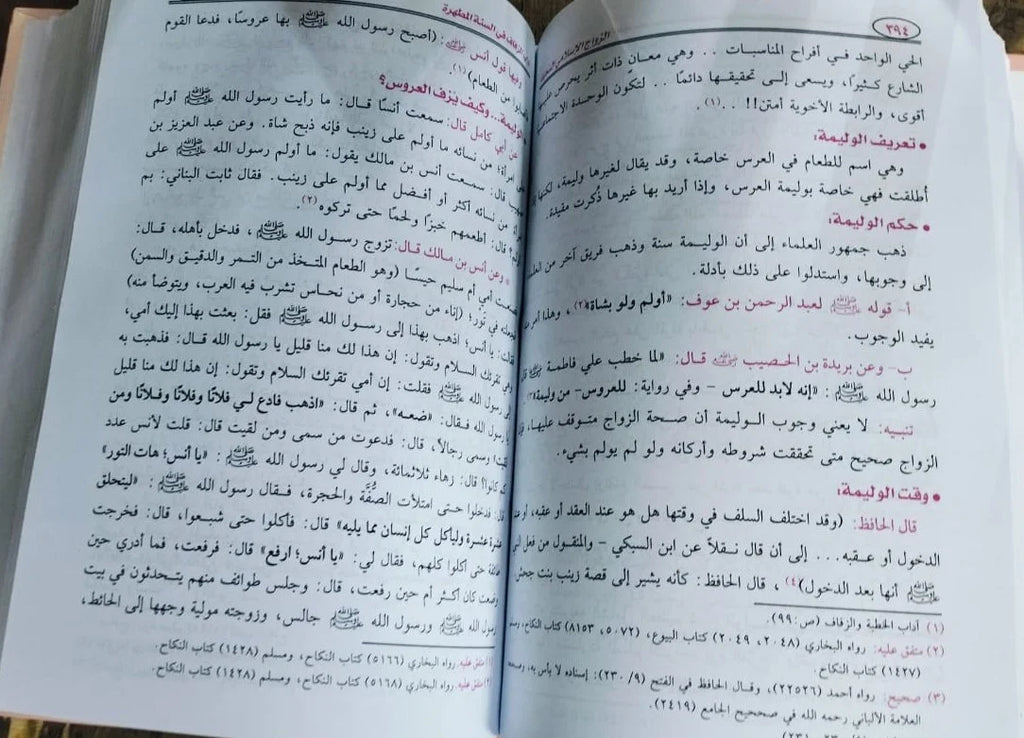 ٣٩٤
الزواج الإسلامي
الحي الواحد في أفراح المناسبات . . وهي معانٍ ذات أثر يحرص عليها
الشارع كثيرًا، ويسعى إلى تحقيقها دائمًا . . لتكون الوحدة الاجتماعية
أقوى، والرابطة الأخوية أمتن!! . .(١).
• تعريف الوليمة:
وهي اسم للطعام في العرس خاصة، وقد يقال لغيرها وليمة، لكنها إذا
أطلقت فهي خاصة بوليمة العرس، وإذا أريد بها غيرها ذُكرت مقيدة.
• حكم الوليمة:
ذهب جمهور العلماء إلى أن الوليمة سنة وذهب فريق آخر من العلماء
إلى وجوبها، واستدلوا على ذلك بأدلة.
أ- قوله ﷺ لعبد الرحمن بن عوف: «أولم ولو بشاة»(٢)، وهذا أمر
يفيد الوجوب.
ب- وعن بريدة بن الحصيب قال: «لما خطب علي فاطمة قال
رسول الله ﷺ: «إنه لابد للعرس - وفي رواية: للعروس- من وليمة»(٣)
تنبيه: لا يعني وجوب الوليمة أن صحة الزواج متوقف عليها،
الزواج صحيح متى تحققت شروطه وأركانه ولو لم يولم بشيء.
• وقت الوليمة:
قال الحافظ: (وقد اختلف السلف في وقتها هل هو عند العقد أو عقبه، أو عند
الدخول أو عقبه... إلى أن قال نقلاً عن ابن السبكي - والمنقول من فعل النبي
ﷺ أنها بعد الدخول)(٤)، قال الحافظ: كأنه يشير إلى قصة زينب بنت جحش
(١) آداب الخطبة والزفاف (ص:٩٩).
(٢) متفق عليه: رواه البخاري (٢٠٤٨، ٢٠٤٩) كتاب البيوع، (٥٠٧٢، ٨١٥٣) كتاب النكاح،
(١٤٢٧) كتاب النكاح.
(٣) صحيح: رواه أحمد (٢٢٥٢٦)، وقال الحافظ في الفتح (٩/ ٢٣٠): إسناده لا بأس به،
العلامة الألباني رحمه الله في صحيح الجامع (٢٤١٩).
الزفاف في السنة المطهرة
وفيها قول أنس: (أصبح رسول الله ﷺ بها عروسًا، فدعا القوم
من الطعام)(١).
الوليمة... وكيف يزف العروس؟
عن أبي كامل قال: سمعت أنسًا قال: ما رأيت رسول الله ﷺ أولم
على امرأة؛ من نسائه ما أولم على زينب فإنه ذبح شاة. وعن عبد العزيز بن
صهيب قال: سمعت أنس بن مالك يقول: ما أولم رسول الله ﷺ على
من نسائه أكثر أو أفضل مما أولم على زينب. فقال ثابت البناني: بم
أولم؟ قال: أطعمهم خبزًا ولحمًا حتى تركوه(٢).
• وعن أنس بن مالك قال: تزوج رسول الله ﷺ، فدخل بأهله، قال:
فصنعت أمي أم سليم حيسًا (وهو الطعام المتخذ من التمر والدقيق والسمن)
فجعلته في تَور؛ (إناء من حجارة أو من نحاس تشرب فيه العرب، ويتوضأ منه)
فقالت: يا أنس؛ اذهب بهذا إلى رسول الله ﷺ فقل: بعثت بهذا إليك أمي،
وهي تقرئك السلام وتقول: إن هذا لك منا قليل يا رسول الله قال: فذهبت به
إلى رسول الله ﷺ فقلت: إن أمي تقرئك السلام وتقول: إن هذا لك منا قليل
يا رسول الله فقال: «ضعه»، ثم قال: «اذهب فادع لي فلانًا وفلانًا وفلانًا ومن
لقيت» وسمى رجالاً، قال: فدعوت من سمى ومن لقيت قال: قلت لأنس عدد
كم كانوا؟ قال: زهاء ثلاثمائة، وقال لي رسول الله ﷺ: «يا أنس؛ هات التور»
قال: فدخلوا حتى امتلأت الصُّفَّة والحجرة، فقال رسول الله ﷺ: «ليتحلق
عشرة عشرة وليأكل كل إنسان مما يليه» قال: فأكلوا حتى شبعوا، قال: فخرجت
طائفة حتى أكلوا كلهم، فقال لي: «يا أنس؛ ارفع» قال: فرفعت، فما أدري حين
وضعت كان أكثر أم حين رفعت، قال: وجلس طوائف منهم يتحدثون في بيت
رسول الله ﷺ ورسول الله ﷺ جالس، وزوجته مولية وجهها إلى الحائط،
(١) متفق عليه. رواه البخاري (٥١٦٦) كتاب النكاح، ومسلم (١٤٢٨) كتاب النكاح.
(٢) متفق عليه. رواه البخاري (٥١٦٨) كتاب النكاح، ومسلم (١٤٢٨) كتاب النكاح.